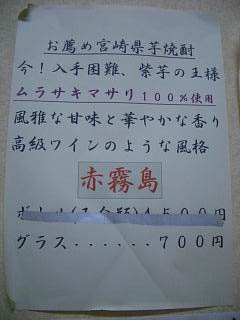 お薦め宮崎県芋焼酎
今!入手困難、紫芋の王様
ムラサキマサリ100%使用
風雅な甘味と華やかな香り
高級ワインのような風格
赤霧島
グラス......700円